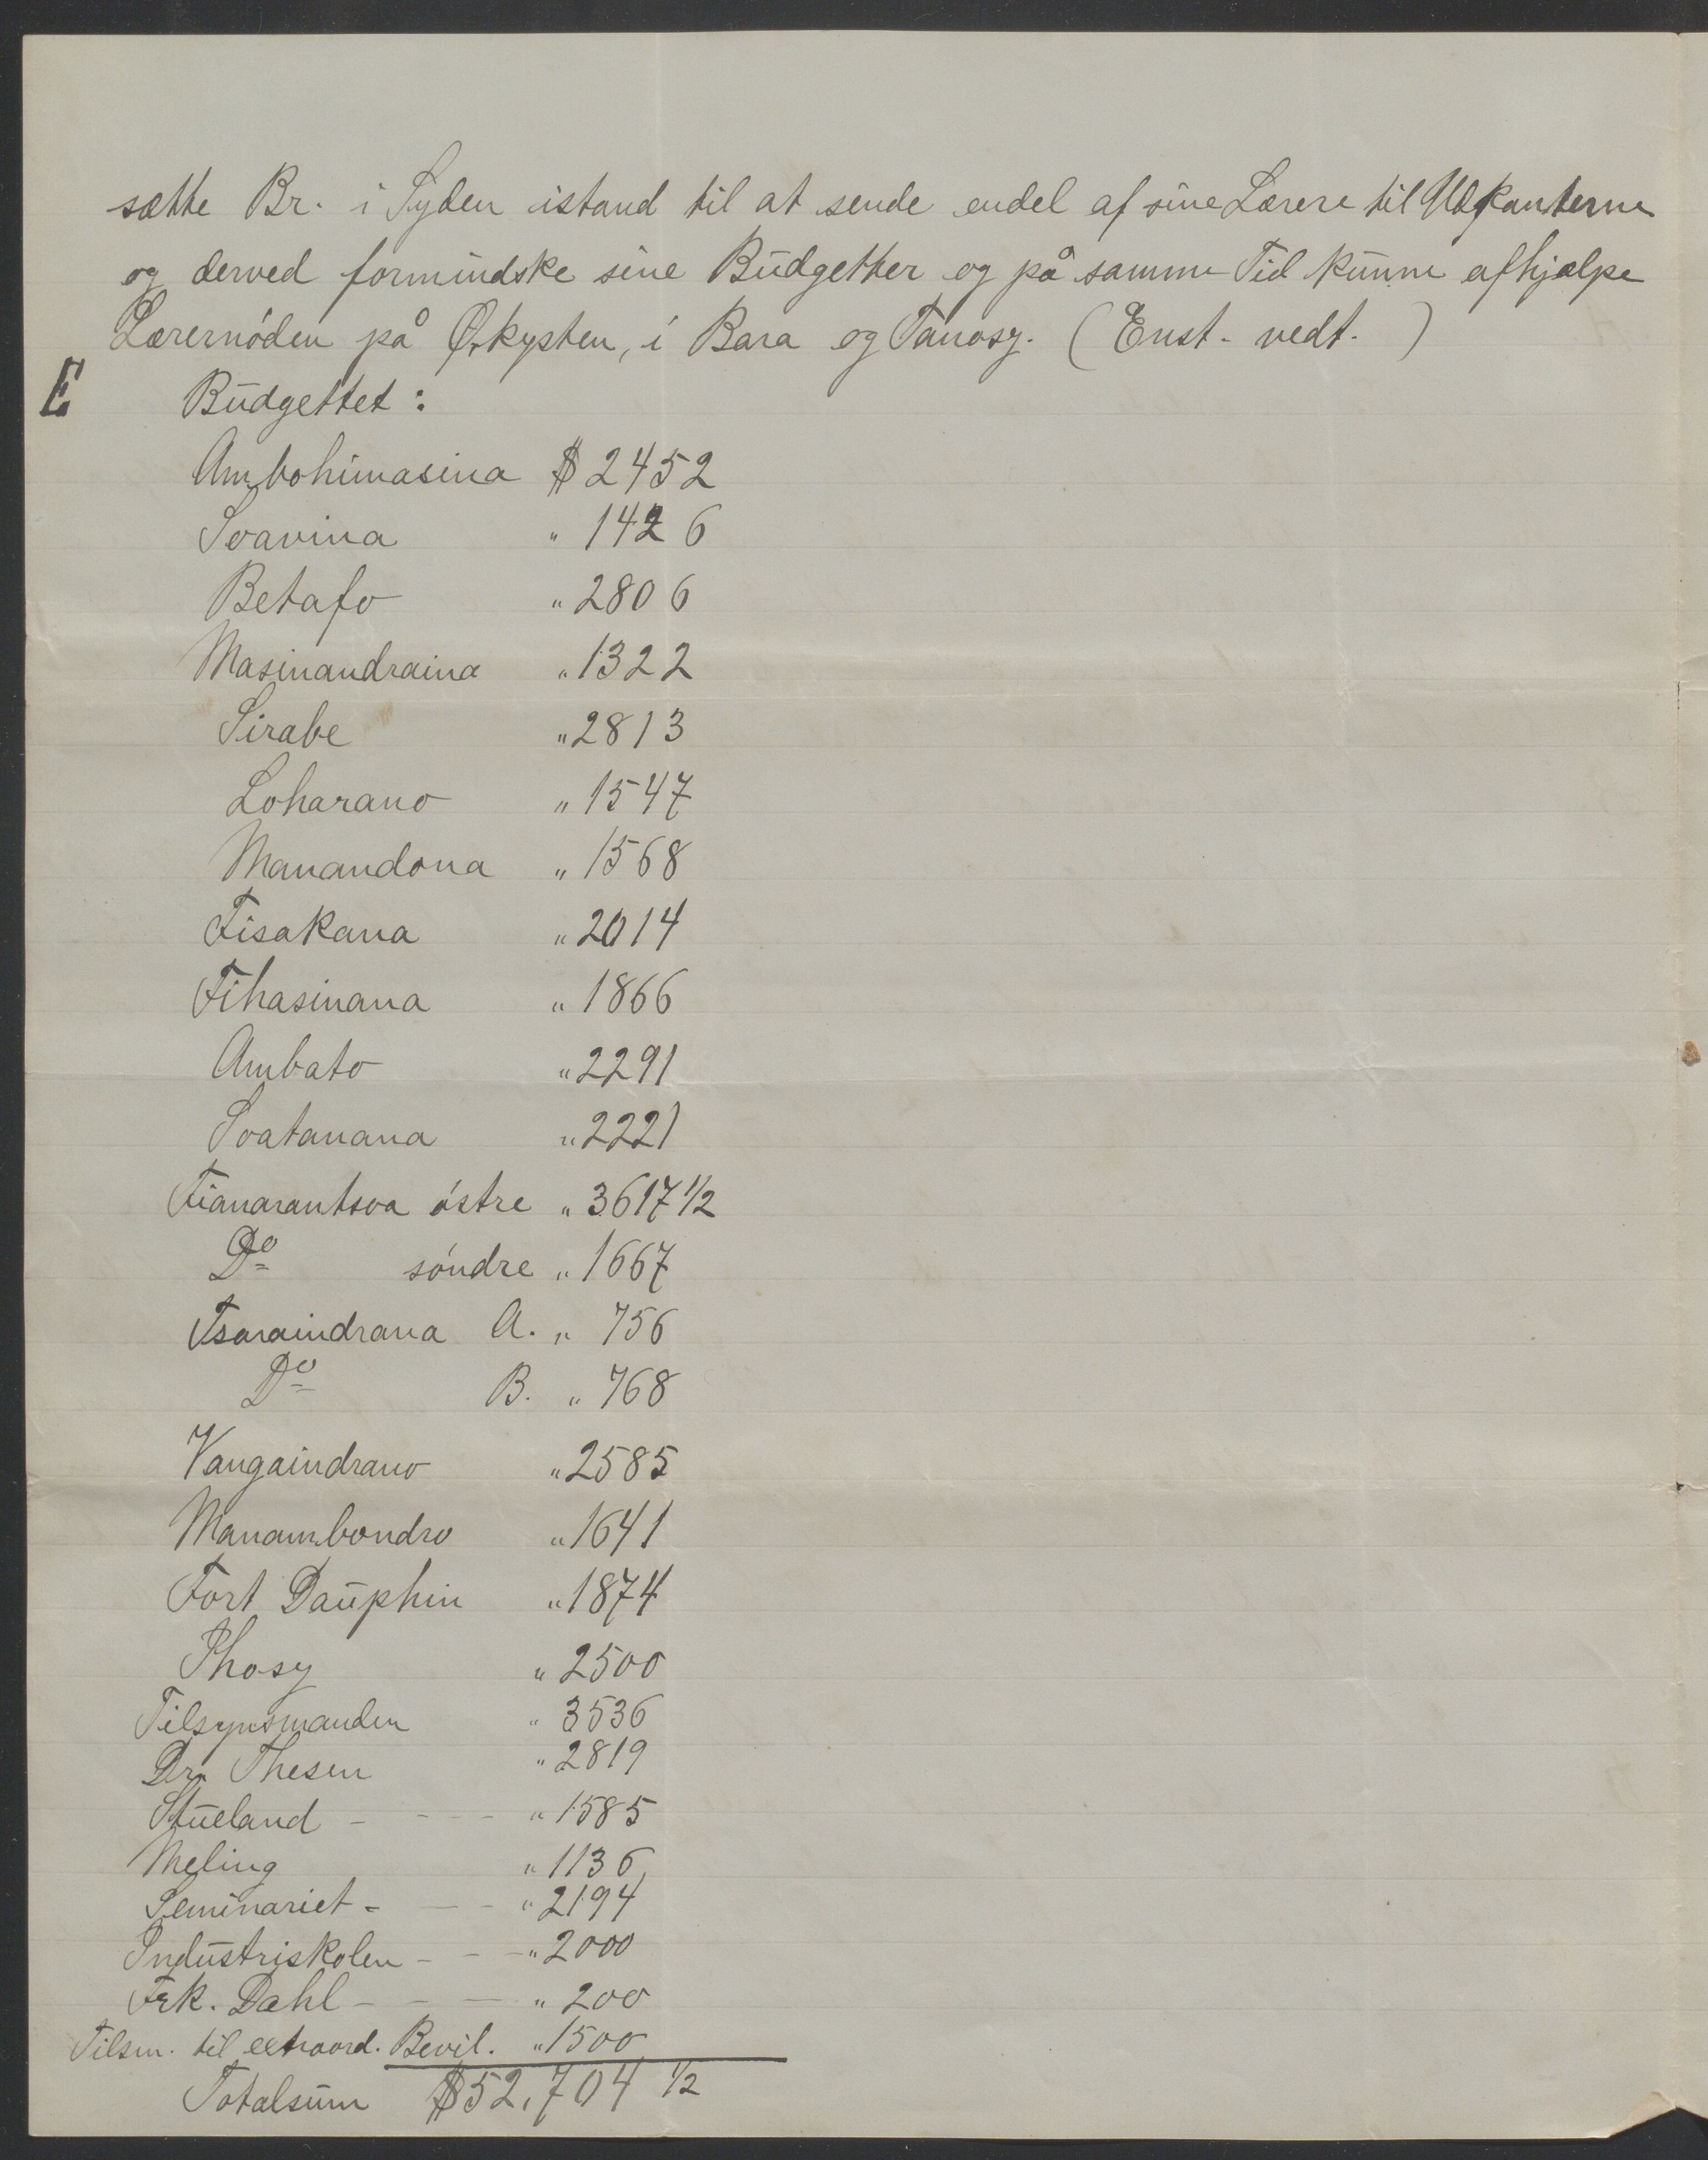 sætte Br. i Syden istand til at sende endel af sine Lærere til Udkanterne
og derved formindske sine Budgetter og på samme Tid kunne afhjælpe
Lærernøden på Ø.kysten, i Bara og Tanosy. (Enst. vedt. )
E Budgettet :
Ambohimasina $ 2452
Soavina " 1426
Betafo " 2806
Masinandraina " 1322
Sirabe " 2813
Loharano " 1547
Manandona " 1568
Fisakana " 2014
Fihasinana " 1866
Ambato " 2291
Soatanana " 2221
Fianarantsoa østre " 3617 1/2
Do søndre " 1667
Tsaraindrana A. " 756
Do B. " 768
Vangaindrano " 2585
Manambondro " 1641
Fort Dauphin " 1874
Ihosy " 2500
Tilsynsmanden " 3536
Dr. Thesen " 2819
Stueland - - - - " 1585
Meling " 1136
Seminariet - - - " 2194
Industriskolen - - - " 2000
Frk. Dahl - - - " 200
Tilsm. til extraord. Bevil. " 1500
Totalsum $52,704 1/2